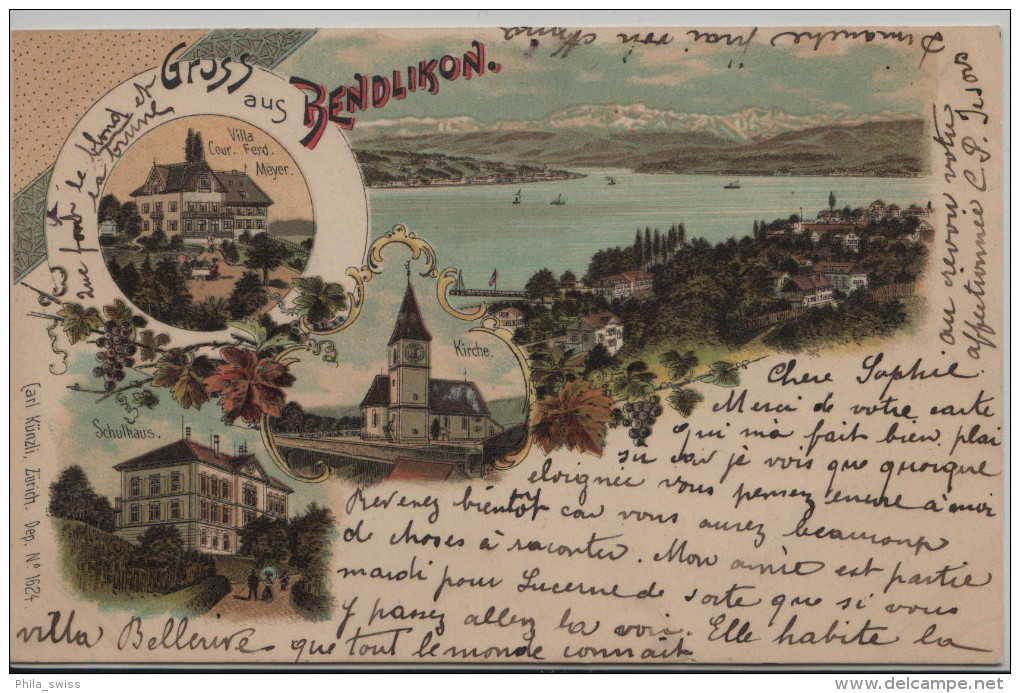 Gruss
aus
BENDLIKON.
Villa
Cour. Ferd.
Meyer.
Kirche.
Schulhaus.
Carl Künzli, Zürich. Dep. N° 1624.
Chere Sophie.
Merci de votre carte
qui m'a fait bien plai
sir car je vois que quoique
eloignée vous pensez encore à moi
Revenez bientôt car vous aurez beaucoup
de choses à raconter. Mon amie est partie
mardi pour Lucerne de sorte que si vous
y passez allez la voir. Elle habite la
villa Bellerive que tout le monde connait
Dimanche j'irai voir
que font le blond et
la brune
au revoir votre
affectionnée C. P.
Phila_swiss
delcampe.net